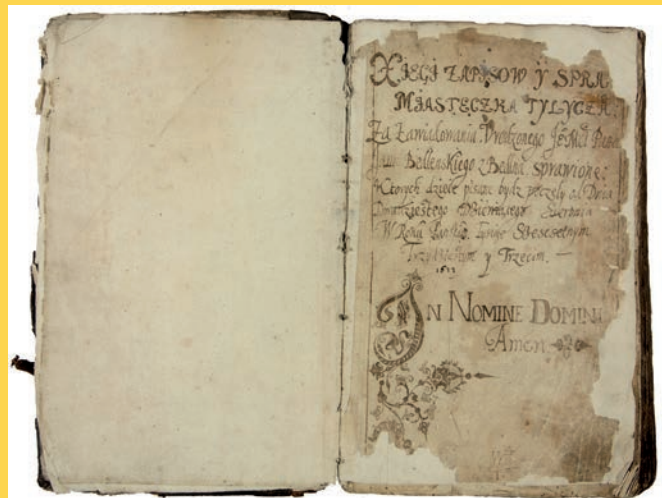 XIĘGI ZAPISOW Y SPRA
MIASTECZKA TYLYCZA.
Za Zawiadowania Vrodzonego Je° Mci Pana
Jana Ballenskiego z Ballina, sprawione:
Ktorych dzieie pisane bydz poczęły od Dnia
Dwudziestego Sierpnia
W Roku Panskim Tysiąc Szescsetnym
Trzydziestym y Trzecim. —
1633
IN NOMINE DOMINI
Amen.